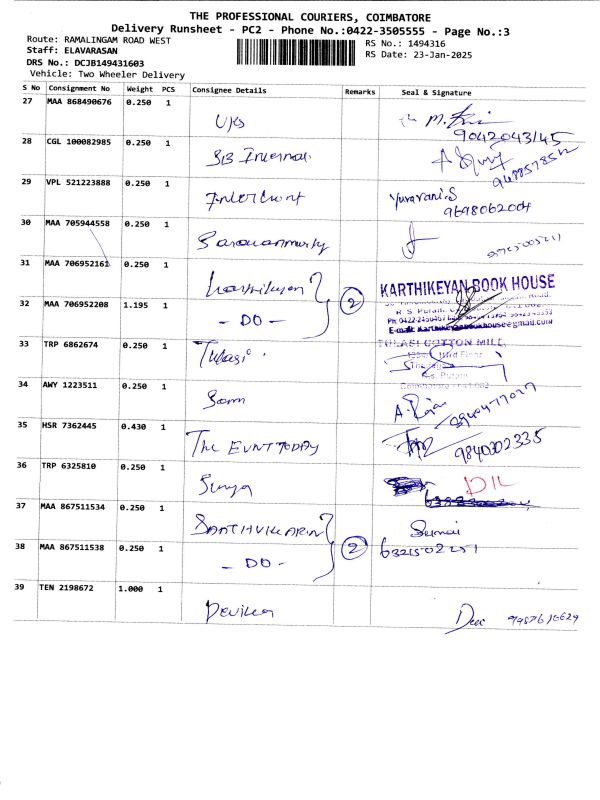 THE PROFESSIONAL COURIERS, COIMBATORE
Delivery Runsheet - PC2 - Phone No.:0422-3505555 - Page No.:3
Route: RAMALINGAM ROAD WEST
RS No.: 1494316
Staff: ELAVARASAN
RS Date: 23-Jan-2025
DRS No.: DCJB149431603
Vehicle: Two Wheeler Delivery
S No Consignment No Weight PCS Consignee Details Remarks Seal & Signature
27 MAA 868490676 0.250 1
9042043145
28 CGL 100082985 0.250 1 SB Internal
29 VPL 521223888 0.250 1 Yuvarani.S
9698062004
30 MAA 705944558 0.250 1
31 MAA 706952161 0.250 1 KARTHIKEYAN BOOK HOUSE
R. S. Puram,
32 MAA 706952208 1.195 1 - DO - 2
33 TRP 6862674 0.250 1 Tulasi TULASI COTTON MILL,
34 AWY 1223511 0.250 1 A. Raja
35 HSR 7362445 0.430 1 The EVNT TODAY 9840302335
36 TRP 6325810 0.250 1 Surya DIL
37 MAA 867511534 0.250 1 Sumai
38 MAA 867511538 0.250 1 - DO - 2
39 TEN 2198672 1.000 1 Devika